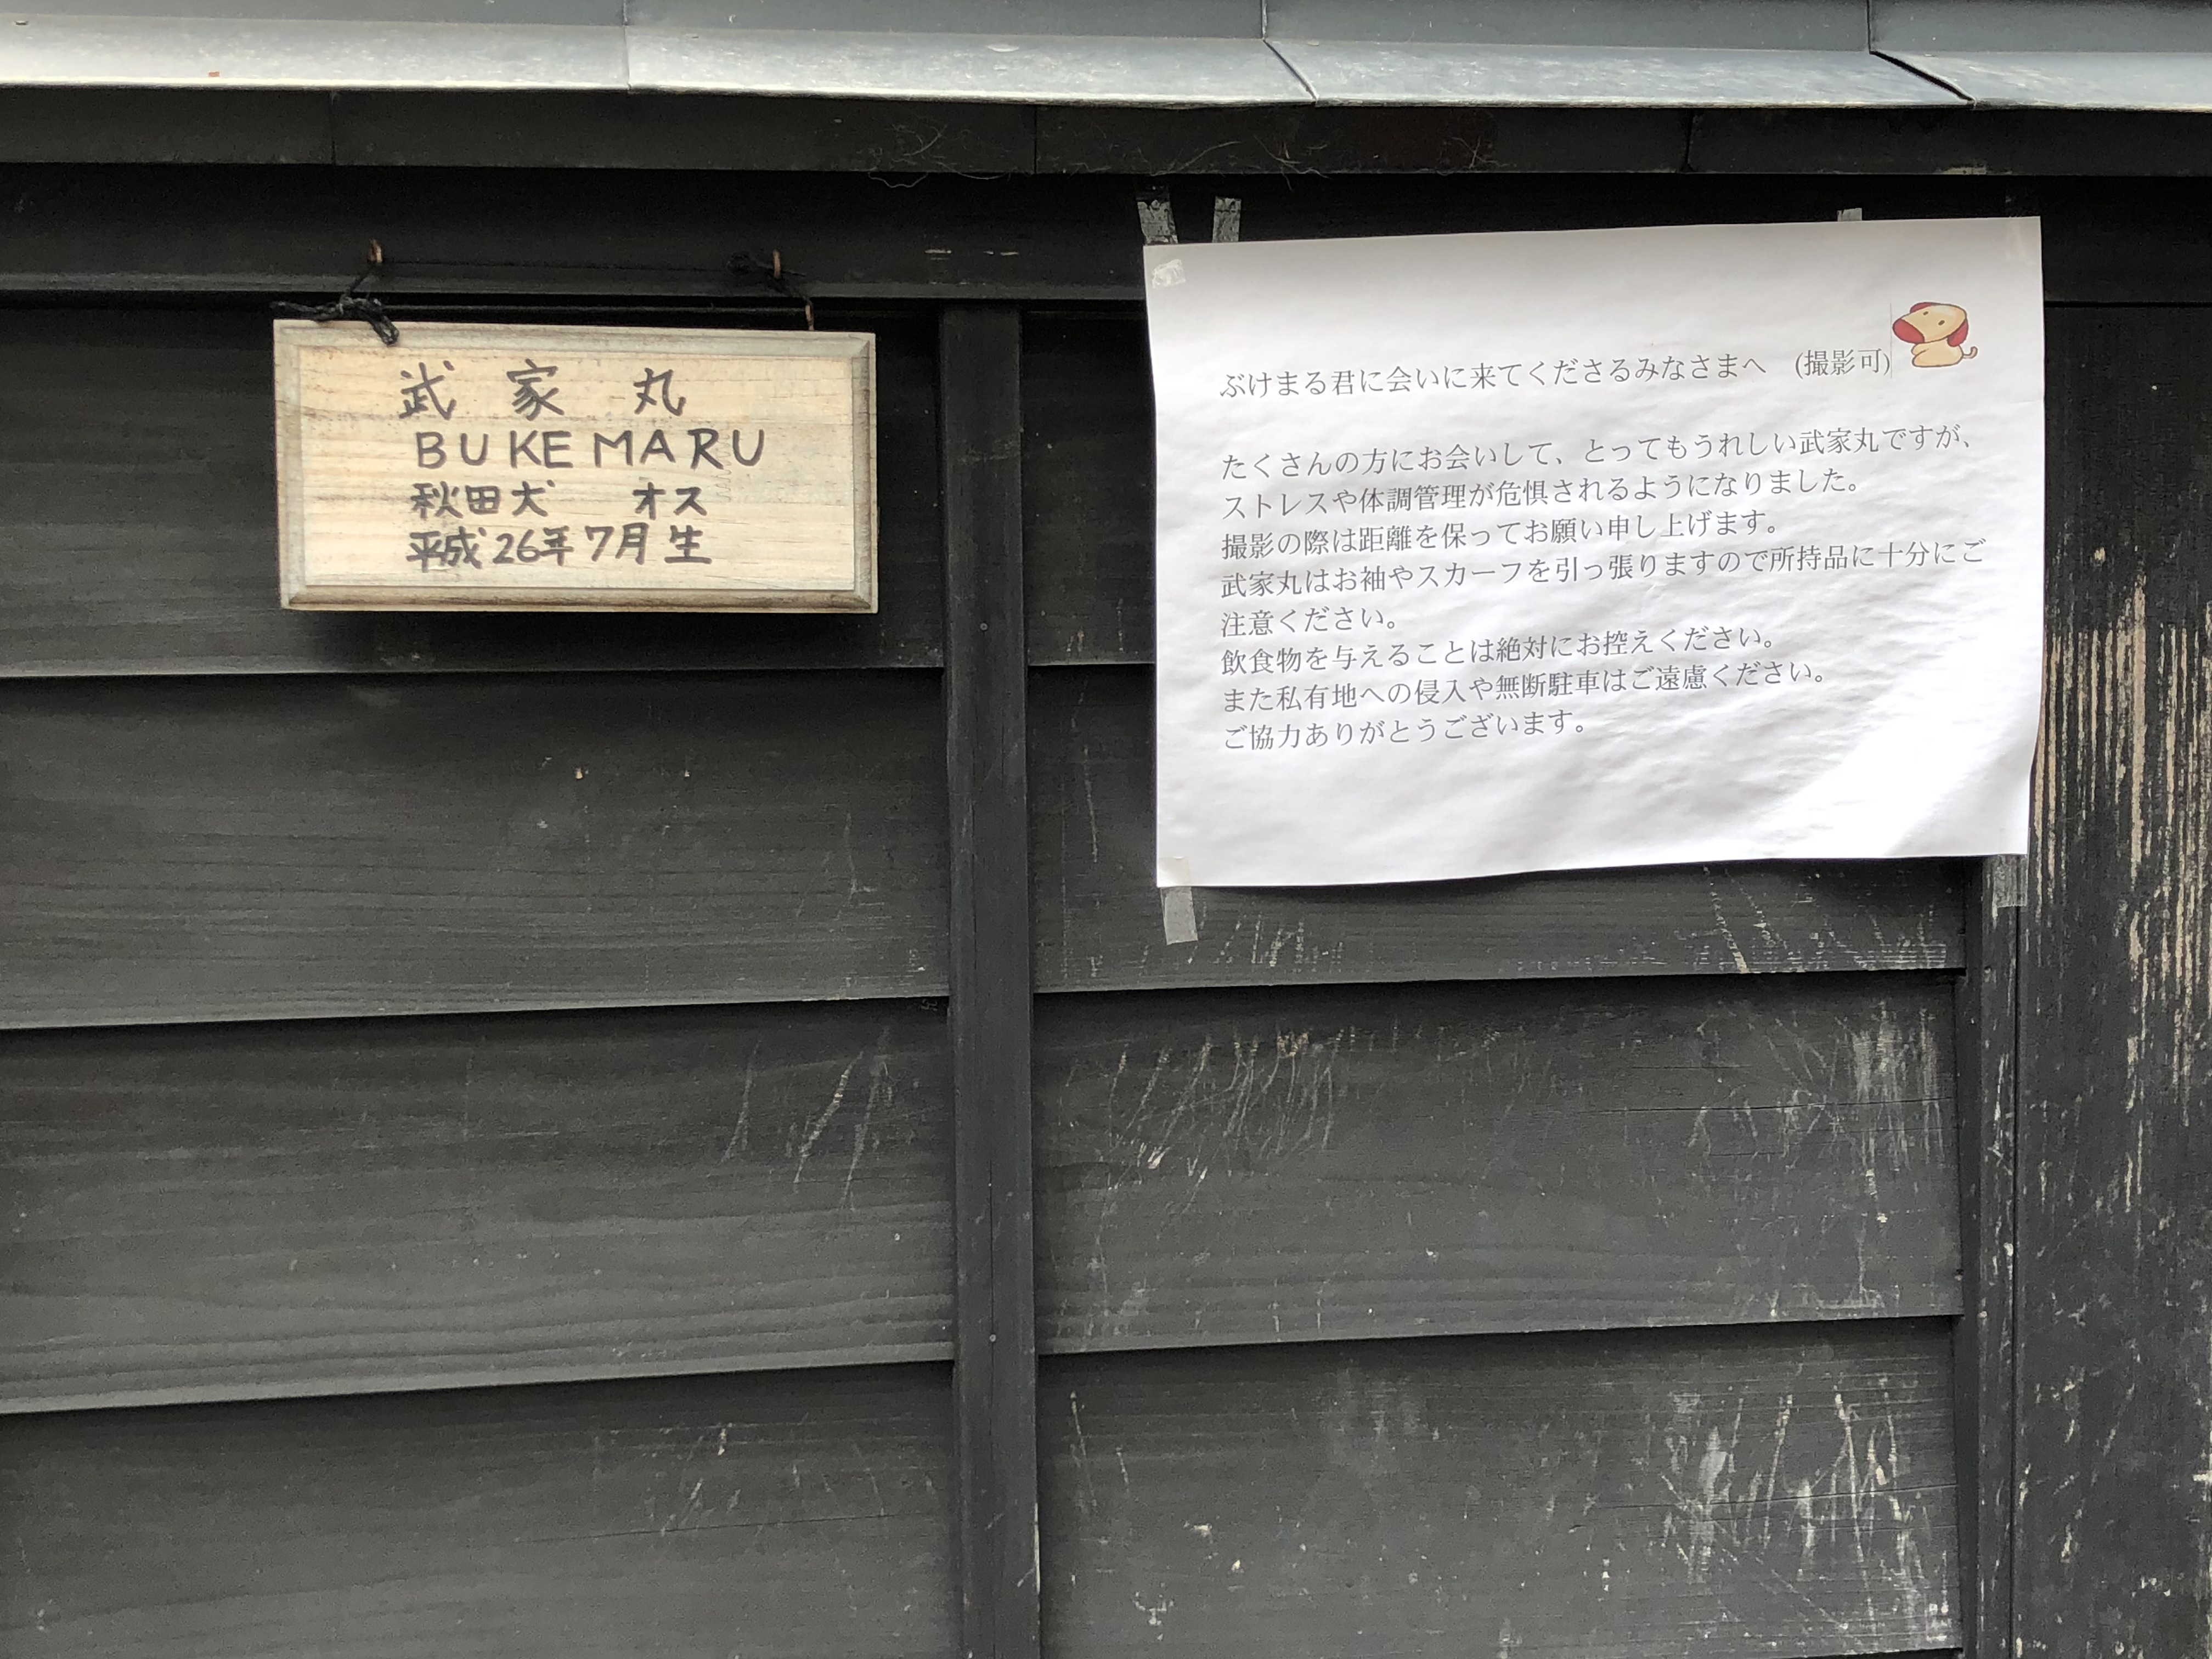 武家丸
BUKEMARU
秋田犬 オス
平成26年7月生
ぶけまる君に会いに来てくださるみなさまへ (撮影可)
たくさんの方にお会いして、とってもうれしい武家丸ですが、
ストレスや体調管理が危惧されるようになりました。
撮影の際は距離を保ってお願い申し上げます。
武家丸はお袖やスカーフを引っ張りますので所持品に十分にご
注意ください。
飲食物を与えることは絶対にお控えください。
また私有地への侵入や無断駐車はご遠慮ください。
ご協力ありがとうございます。